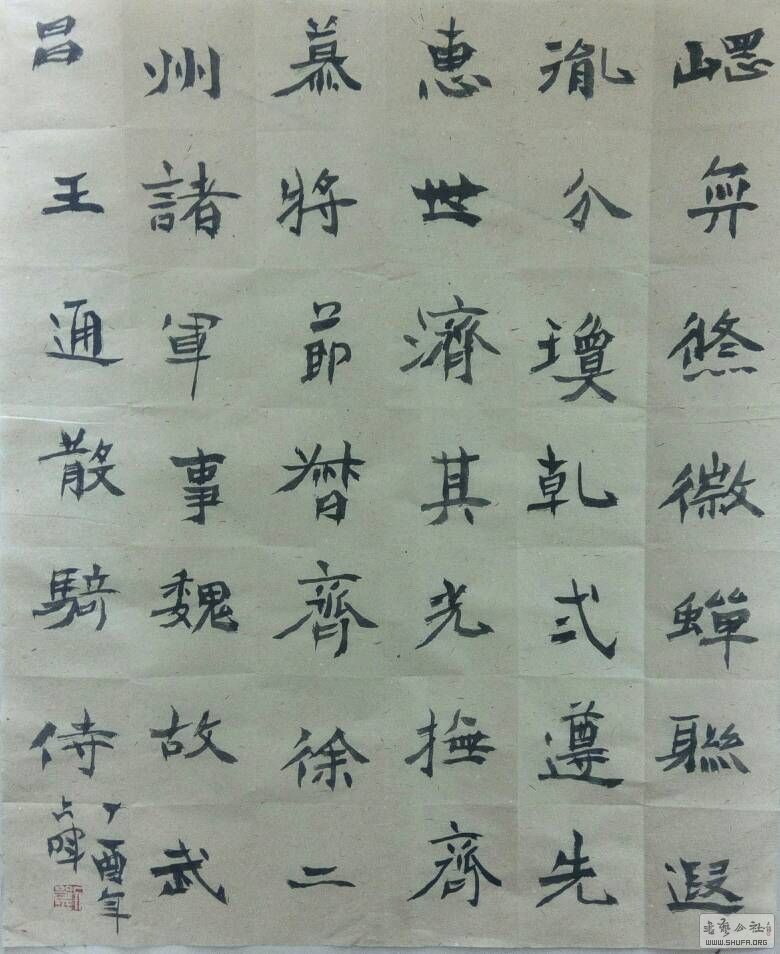 微蟬聯遐
胤分瓊乾弍遵先
惠世濟其光撫齊
慕將節督齊徐二
州諸軍事魏故武
昌王通散騎侍
丁酉年
书艺公社
WWW.SHUFA.ORG